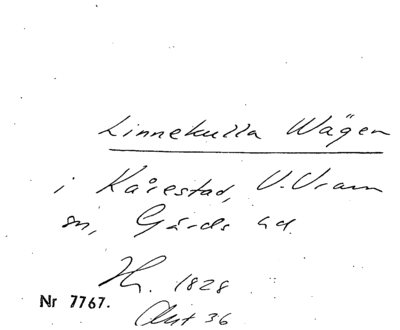 Linnekulla Wägen
i Kårestad, V. Vram
sn, Gärds hd.
Hr. 1828
Nr 7767.
Akt 36